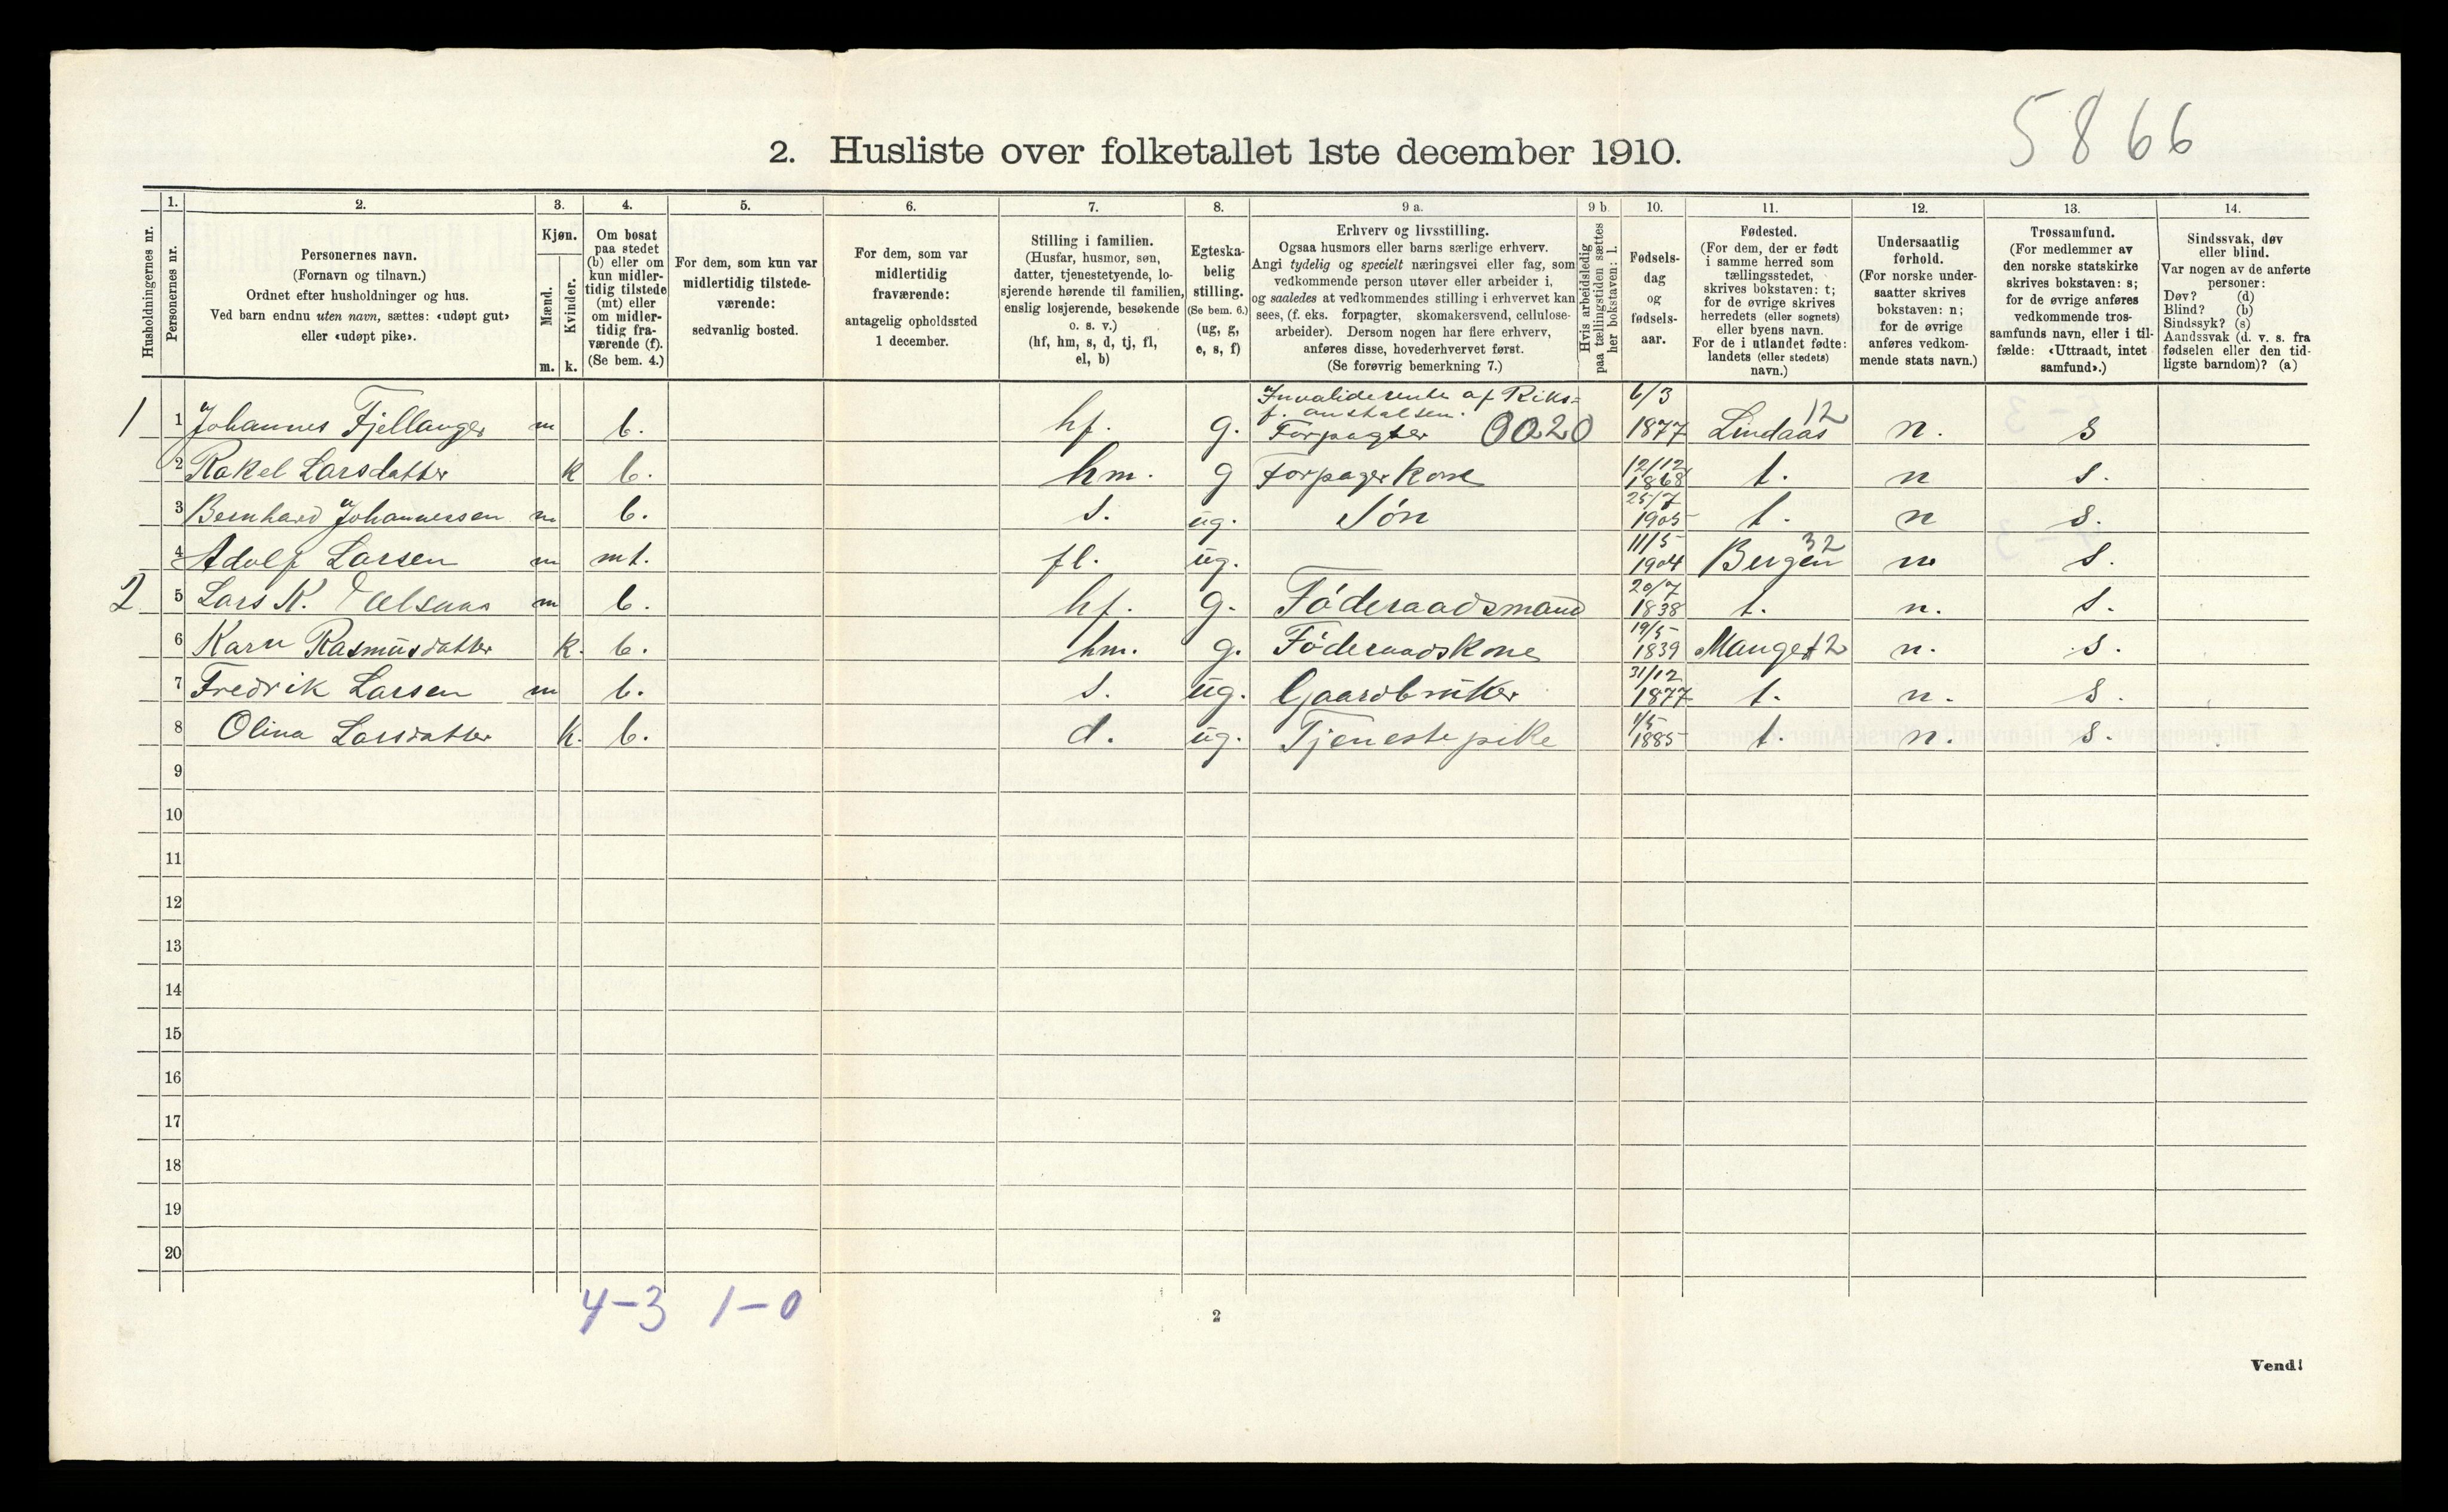 5866
2. Husliste over folketallet 1ste december 1910.
Husholdningernes nr.
1.
Personernes nr.
2.
Personernes navn.
(Fornavn og tilnavn.)
Ordnet efter husholdninger og hus.
Ved barn endnu uten navn, sættes: «udøpt gut»
eller «udøpt pike».
3.
Kjøn.
Mænd.
Kvinder.
m. k.
4.
Om bosat
paa stedet
(b) eller om
kun midler-
tidig tilstede
(mt) eller
om midler-
tidig fra-
værende (f).
(Se bem. 4.)
5.
For dem, som kun var
midlertidig tilstede-
værende:
sedvanlig bosted.
6.
For dem, som var
midlertidig
fraværende:
antagelig opholdssted
1 december.
7.
Stilling i familien.
(Husfar, husmor, søn,
datter, tjenestetyende, lo-
sjerende hørende til familien,
enslig losjerende, besøkende
o. s. v.)
(hf, hm, s, d, tj, fl,
el, b)
8.
Egteska-
belig
stilling.
(Se bem. 6.)
(ug, g,
e, s, f)
9 a.
Erhverv og livsstilling.
Ogsaa husmors eller barns særlige erhverv.
Angi tydelig og specielt næringsvei eller fag, som
vedkommende person utøver eller arbeider i,
og saaledes at vedkommendes stilling i erhvervet kan
sees, (f. eks. forpagter, skomakersvend, cellulose-
arbeider). Dersom nogen har flere erhverv,
anføres disse, hovederhvervet først.
(Se forøvrig bemerkning 7.)
9 b
Hvis arbeidsledig
paa tællingstiden sættes
her bokstaven: l.
10.
Fødsels-
dag
og
fødsels-
aar.
11.
Fødested.
(For dem, der er født
i samme herred som
tællingsstedet,
skrives bokstaven: t;
for de øvrige skrives
herredets (eller sognets)
eller byens navn.
For de i utlandet fødte:
landets (eller stedets)
navn.)
12.
Undersaatlig
forhold.
(For norske under-
saatter skrives
bokstaven: n;
for de øvrige
anføres vedkom-
mende stats navn.)
13.
Trossamfund.
(For medlemmer av
den norske statskirke
skrives bokstaven: s;
for de øvrige anføres
vedkommende tros-
samfunds navn, eller i til-
fælde: «Uttraadt, intet
samfund».)
14.
Sindssvak, døv
eller blind.
Var nogen av de anførte
personer:
Døv? (d)
Blind? (b)
Sindssyk? (s)
Aandssvak (d. v. s. fra
fødselen eller den tid-
ligste barndom)? (a)
Invaliderente af Riks=
f. anstalsen. 6/3
1 1 Johannes Fjellanger m b. hf. g. Forpagter 0020 1877 Lindaas 12 n. s
2 Rakel Larsdatter k b. hm. g Forpagerkone 12/12 1868 t. n s.
3 Bernhard Johannessen m b. s. ug. Søn 25/7 1905 t. n s.
4 Adolf Larsen m mt. fl. ug. 11/5 1904 Bergen 32 n s.
2 5 Lars K. m b. hf. g. Föderaadsmand 20/7 1838 t. n. s.
6 Kari Rasmusdatter k. b. hm. g. Föderaadskone 19/5 1839 Manger 12 n. s.
7 Fredrik Larsen m b. s. ug. Gaardbruker 31/12 1877 t. n. s.
8 Olina Larsdatter k. b. d. ug. Tjenestepike 1/5 1885 t. n. s.
9
10
11
12
13
14
15
16
17
18
19
20
4-3 1-0
2
Vend!